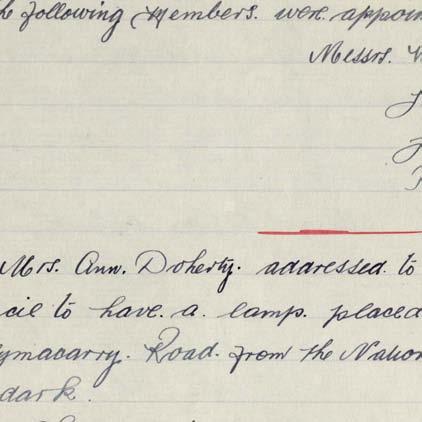 he following Members. were. appoin
Messrs.
Mrs. Ann. Doherty. addressed. to
cil to have. a. lamp. placed
ymacarry. Road. from the Nation
dark.